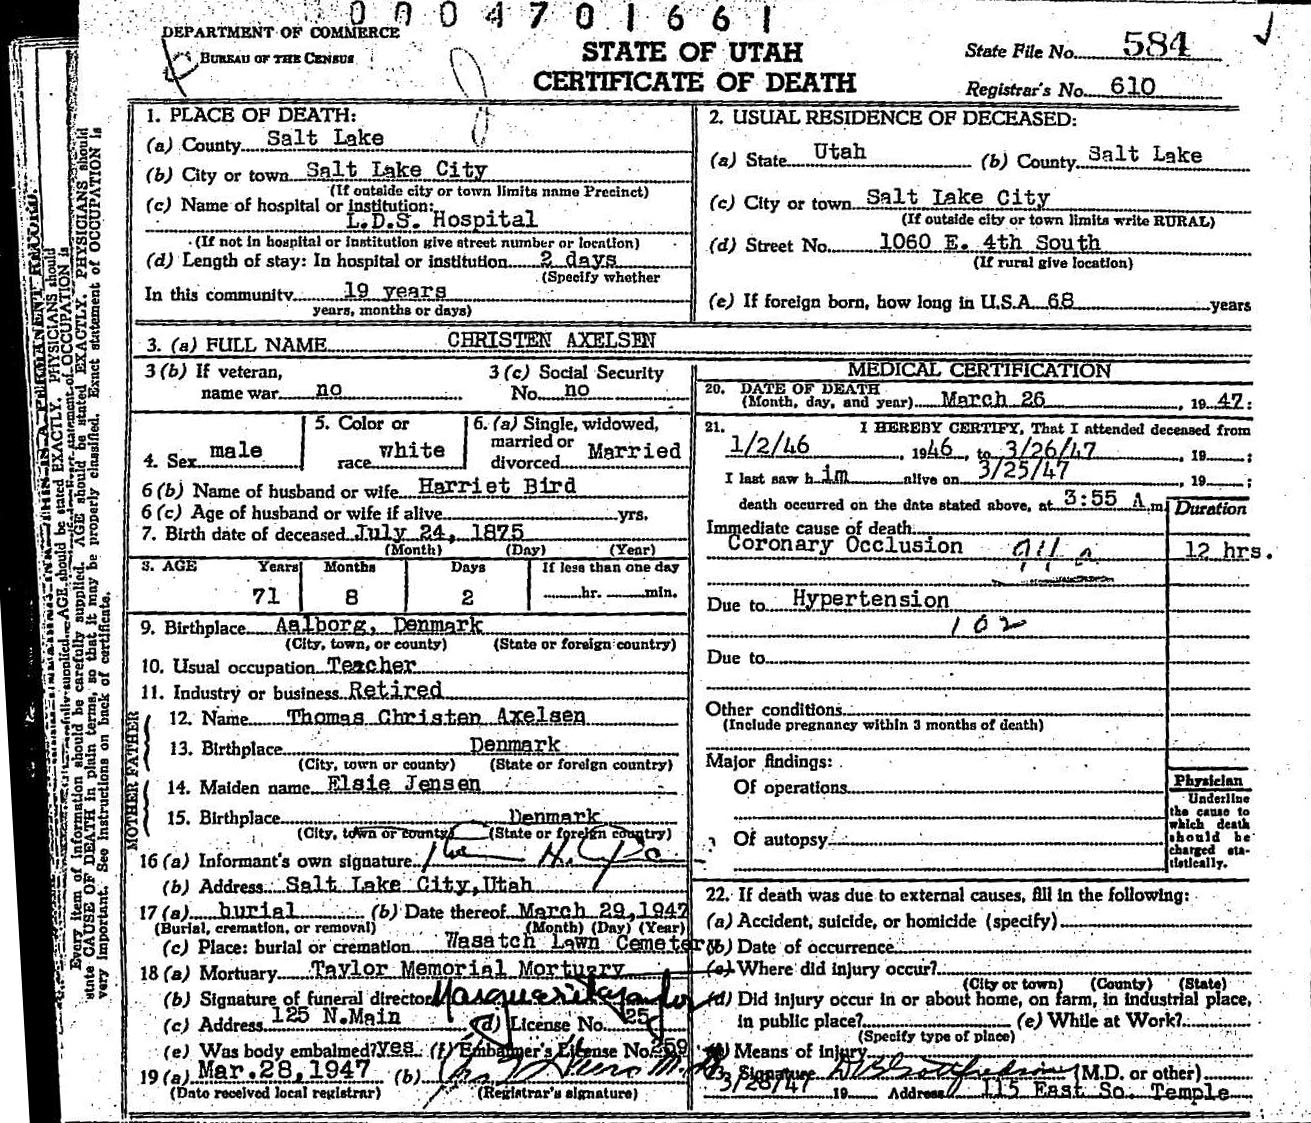 0004701661
DEPARTMENT OF COMMERCE
BUREAU OF THE CENSUS
STATE OF UTAH
CERTIFICATE OF DEATH
State File No. 584
Registrar's No. 610
1. PLACE OF DEATH:
(a) County Salt Lake
(b) City or town Salt Lake City
(If outside city or town limits name Precinct)
(c) Name of hospital or institution:
L.D.S. Hospital
(If not in hospital or institution give street number or location)
(d) Length of stay: In hospital or institution 2 days
(Specify whether
In this community 19 years
years, months or days)
2. USUAL RESIDENCE OF DECEASED:
(a) State Utah (b) County Salt Lake
(c) City or town Salt Lake City
(If outside city or town limits write RURAL)
(d) Street No. 1060 E. 4th South
(If rural give location)
(e) If foreign born, how long in U.S.A. 68 years
3. (a) FULL NAME CHRISTEN AXELSEN
3 (b) If veteran, name war no
3 (c) Social Security No. no
4. Sex male
5. Color or race white
6. (a) Single, widowed, married or divorced Married
6 (b) Name of husband or wife Harriet Bird
6 (c) Age of husband or wife if alive yrs.
7. Birth date of deceased July 24, 1875
(Month) (Day) (Year)
8. AGE Years Months Days If less than one day
71 8 2 hr. min.
9. Birthplace Aalborg, Denmark
(City, town, or county) (State or foreign country)
10. Usual occupation Teacher
11. Industry or business Retired
FATHER
12. Name Thomas Christen Axelsen
13. Birthplace Denmark
(City, town or county) (State or foreign country)
MOTHER
14. Maiden name Elsie Jensen
15. Birthplace Denmark
(City, town or county) (State or foreign country)
16 (a) Informant's own signature
(b) Address Salt Lake City, Utah
17 (a) burial (b) Date thereof March 29, 1947
(Burial, cremation, or removal) (Month) (Day) (Year)
(c) Place: burial or cremation Wasatch Lawn Cemetery
18 (a) Mortuary Taylor Memorial Mortuary
(b) Signature of funeral director Marguerite Taylor
(c) Address 125 N. Main (d) License No. 25
(e) Was body embalmed? yes (f) Embalmer's License No. 259
19 (a) Mar. 28, 1947 (b)
(Date received local registrar) (Registrar's signature)
MEDICAL CERTIFICATION
20. DATE OF DEATH
(Month, day, and year) March 26, 1947:
21. I HEREBY CERTIFY, That I attended deceased from
1/2/46, 1946, to 3/26/47, 19 ;
I last saw h im alive on 3/25/47, 19 ;
death occurred on the date stated above, at 3:55 A.m.
Duration
Immediate cause of death
Coronary Occlusion 12 hrs.
Due to Hypertension
102
Due to
Other conditions
(Include pregnancy within 3 months of death)
Major findings:
Of operations
Of autopsy
Physician
Underline the cause to which death should be charged statistically.
22. If death was due to external causes, fill in the following:
(a) Accident, suicide, or homicide (specify)
(b) Date of occurrence
(c) Where did injury occur?
(City or town) (County) (State)
(d) Did injury occur in or about home, on farm, in industrial place,
in public place? (e) While at Work?
(Specify type of place)
Means of injury
Signature (M.D. or other)
3/28/47 19 Address 115 East So. Temple
Every item of information should be carefully supplied. AGE should be stated EXACTLY. PHYSICIANS should
state CAUSE OF DEATH in plain terms, so that it may be properly classified. Exact statement of OCCUPATION is
very important. See instructions on back of certificate.